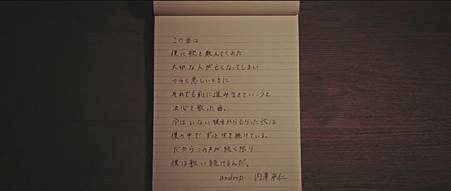 この曲は
僕に歌を教えてくれた
大切な人が亡くなってしまい
つらく悲しいときに
それでも前に進み生きていこうと
決心を歌った曲。
今はいない彼からもらった歌は
僕の中で、ずっと生き続けている。
だからこの声が続く限り
僕は歌い続けるんだ。
androp 内澤崇仁